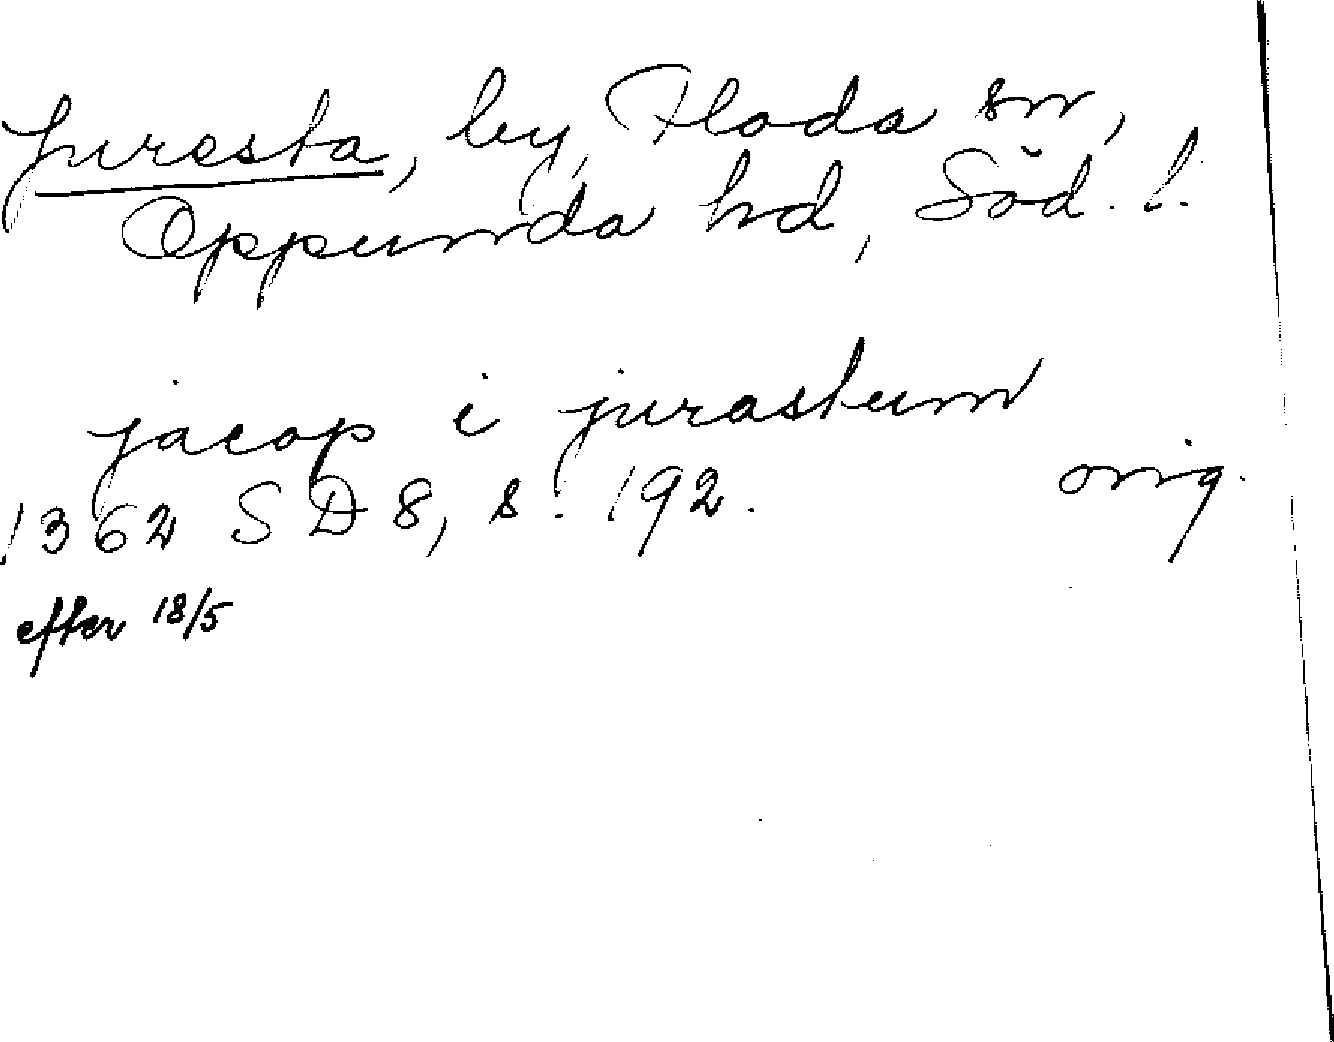 Juresta, by, Floda sn,
Oppunda hd, Söd. l.
jacop i jurastum
1362 SD 8, s. 192. orig.
efter 18/5